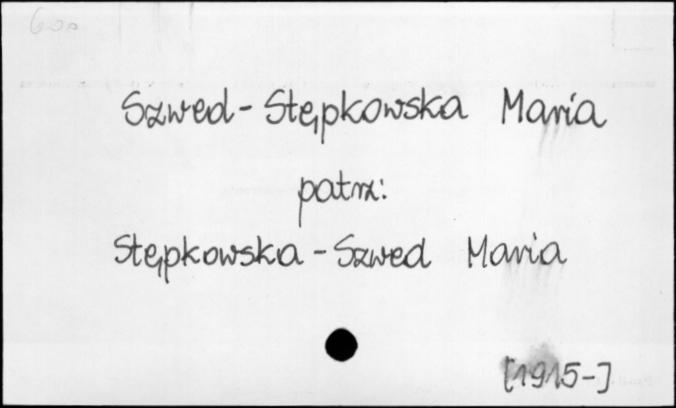 600
Szwed-Stępkowska Maria
patrz:
Stępkowska-Szwed Maria
[1915-]